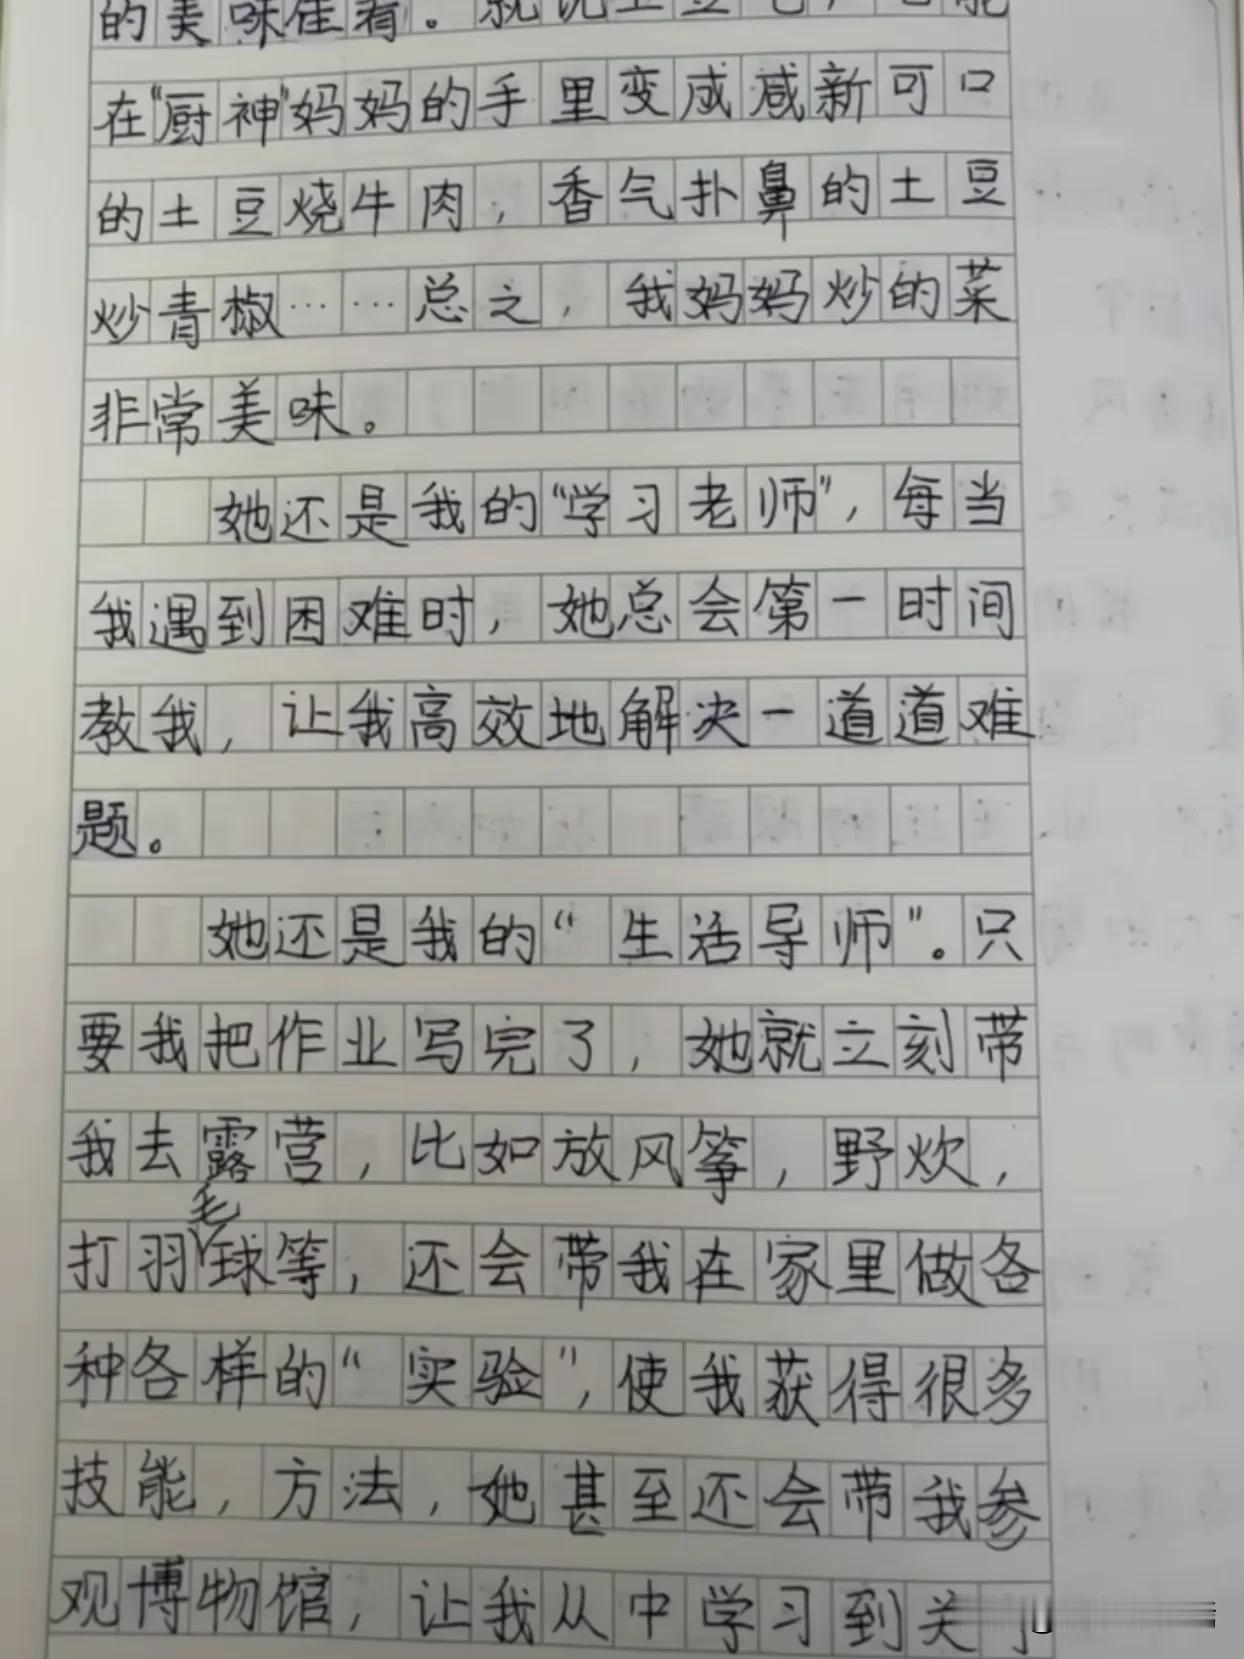 的美味佳肴。就说土豆吧，它能
在“厨神”妈妈的手里变成咸新可口
的土豆烧牛肉，香气扑鼻的土豆
炒青椒……总之，我妈妈炒的菜
非常美味。
她还是我的“学习老师”，每当
我遇到困难时，她总会第一时间
教我，让我高效地解决一道道难
题。
她还是我的“生活导师”。只
要我把作业写完了，她就立刻带
我去露营，比如放风筝，野炊，
打羽毛球等，还会带我在家里做各
种各样的“实验”，使我获得很多
技能，方法，她甚至还会带我参
观博物馆，让我从中学习到关